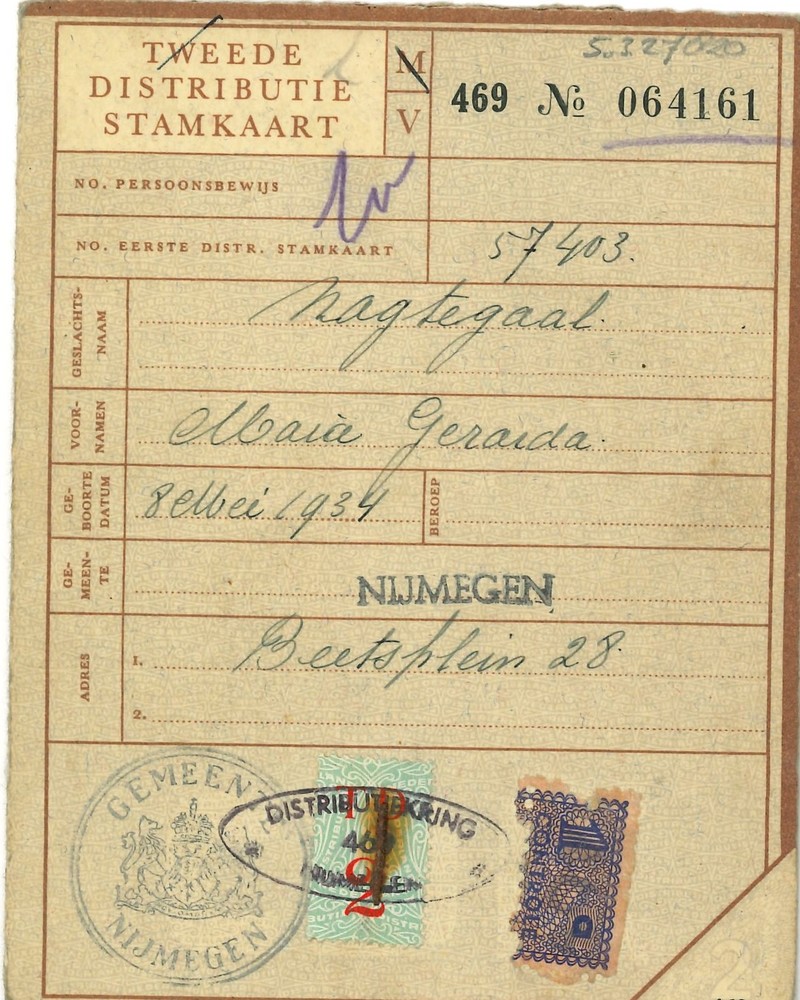 TWEEDE
DISTRIBUTIE
STAMKAART
M
V
5.327020
469 № 064161
NO. PERSOONSBEWIJS
NO. EERSTE DISTR. STAMKAART
57403.
GESLACHTS-
NAAM
Nagtegaal.
VOOR-
NAMEN
Maria Gerarda.
GE-
BOORTE
DATUM
8 Mei 1934
BEROEP
GE-
MEEN-
TE
NIJMEGEN
ADRES
1.
Beetsplein 28.
2.
GEMEENTE
NIJMEGEN
DISTRIBUTIEKRING
469
NIJMEGEN
TD
2
1
D